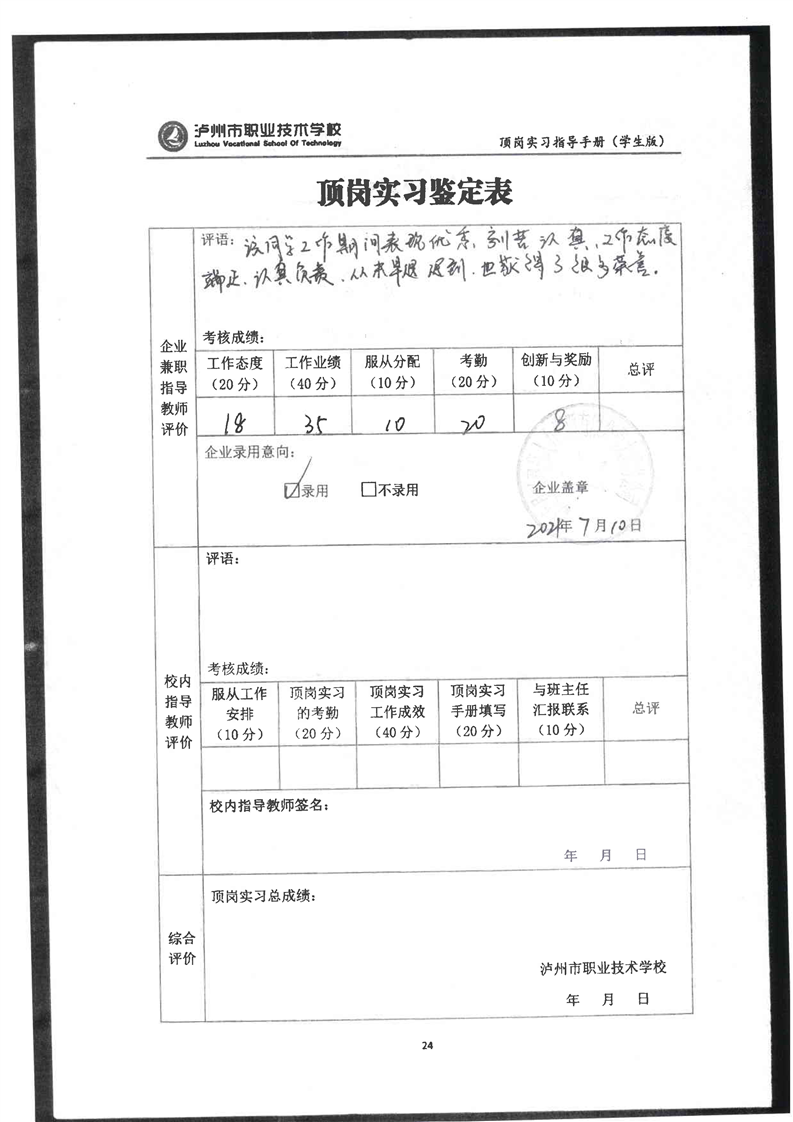 泸州市职业技术学校
Luzhou Vocational School Of Technology
顶岗实习指导手册（学生版）
顶岗实习鉴定表
企业兼职指导教师评价
评语：该同学工作期间表现优秀、刻苦认真、工作态度
端正、认真负责，从未早退迟到，也获得了很多荣誉。
考核成绩：
工作态度（20 分） 工作业绩（40 分） 服从分配（10 分） 考勤（20 分） 创新与奖励（10 分） 总评
18 35 10 20 8
企业录用意向：
☑录用 □不录用 企业盖章
2021年 7 月 10 日
校内指导教师评价
评语：
考核成绩：
服从工作安排（10 分） 顶岗实习的考勤（20 分） 顶岗实习工作成效（40 分） 顶岗实习手册填写（20 分） 与班主任汇报联系（10 分） 总评
校内指导教师签名：
年 月 日
综合评价
顶岗实习总成绩：
泸州市职业技术学校
年 月 日
24